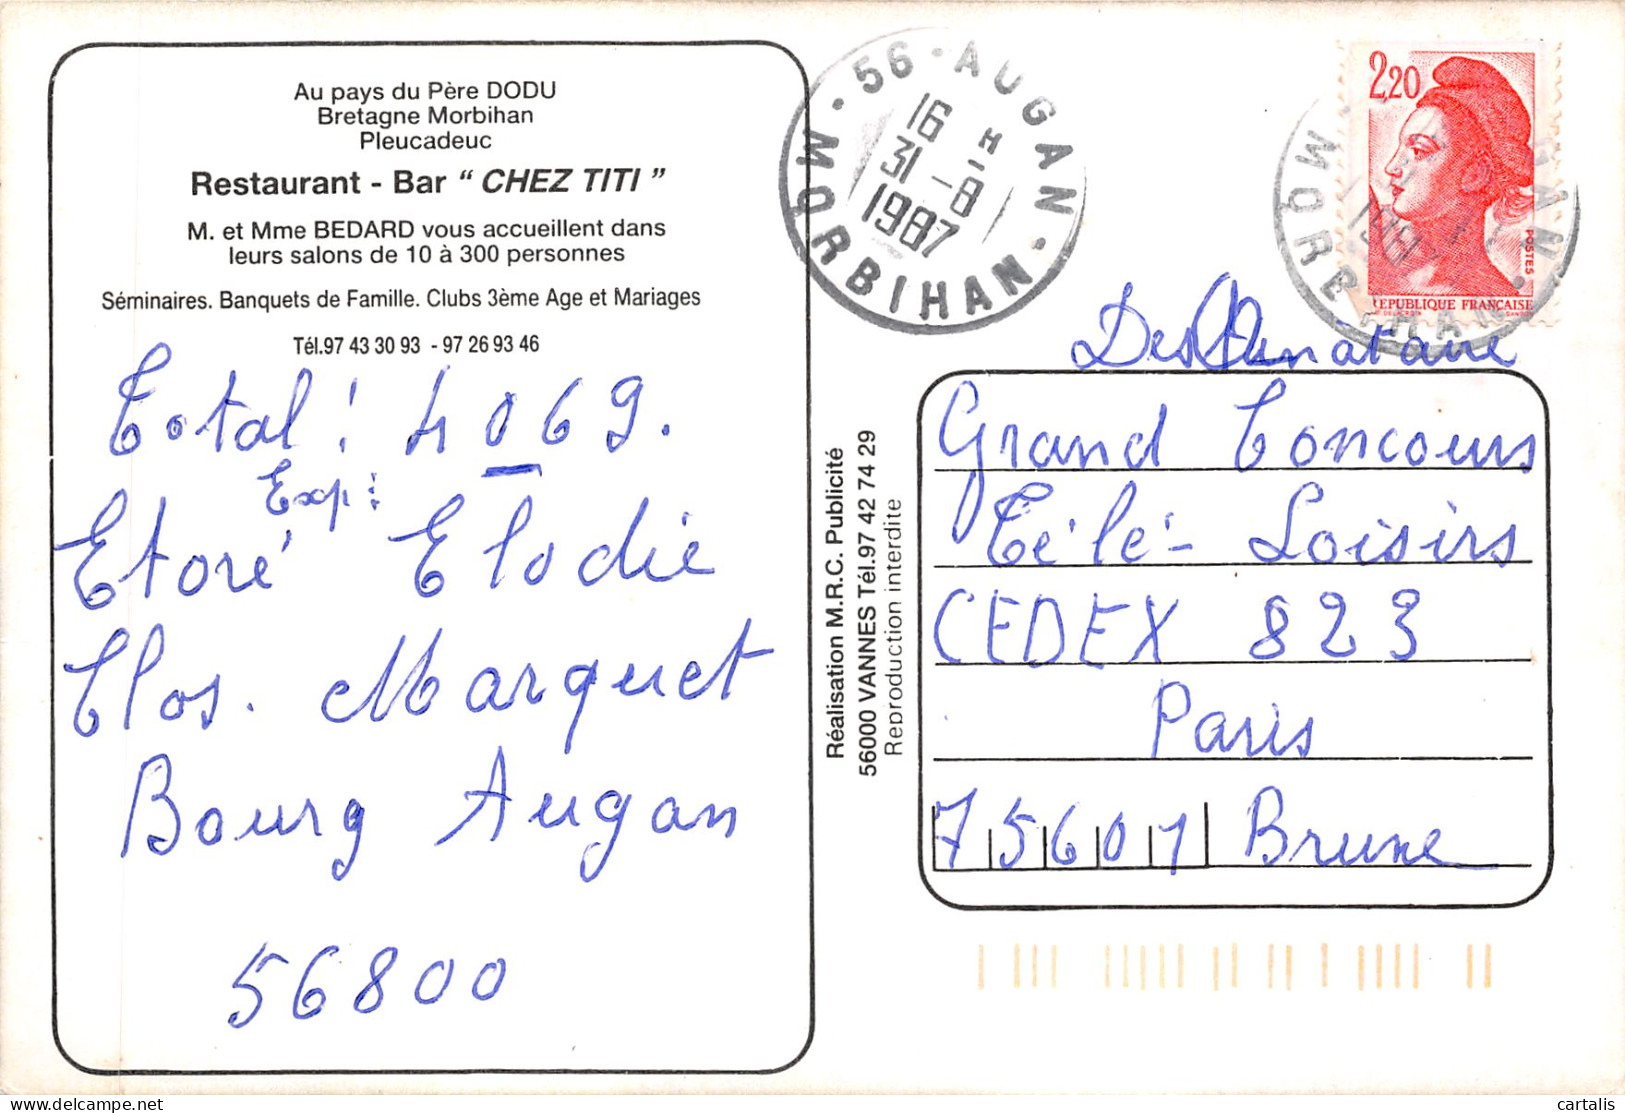 Au pays du Père DODU
Bretagne Morbihan
Pleucadeuc
Restaurant - Bar " CHEZ TITI "
M. et Mme BEDARD vous accueillent dans
leurs salons de 10 à 300 personnes
Séminaires. Banquets de Famille. Clubs 3ème Age et Mariages
Tél.97 43 30 93 - 97 26 93 46
Total : 4069.
Exp :
Etoré Elodie
Clos. Marquet
Bourg Augan
56800
Réalisation M.R.C. Publicité
56000 VANNES Tél.97 42 74 29
Reproduction interdite
56 - AUGAN
16 H
31 - 8
1987
MORBIHAN
2,20
POSTES
REPUBLIQUE FRANÇAISE
Destinataire
Grand Concours
Télé - Loisirs
CEDEX 823
Paris
75601 Brune
cartalis